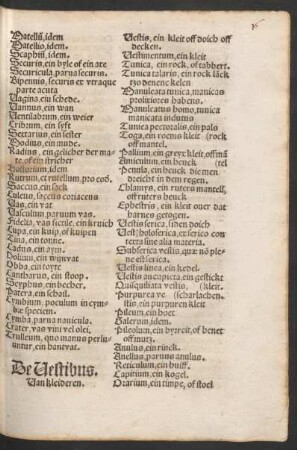 Batellū, idem
Batellio, idem.
Scaphiū, idem.
Securis, ein byle of ein are
Securicula parua securis.
Bipennis, securis ex vtraque
parte acuta
Vagina, ein schede.
Vannus, ein wan
Ventilabrum, ein weier
Cribum, ein syft
Sextarium, ein sester
Modius, ein mudde.
Radius, ein gelicher der ma
te, of ein stricher
Hostorium, idem
Rutrum, et rutellum, pro eodē.
Saccus, ein sack
Culeus, saccus coriaceus
Vas, ein vat
Vasculum paruum vas.
Fidelia, vas fictile, ein kruich
Cupa, ein kuip, of kuipen
Tina, ein tonne.
Cadus, ein aym.
Dolium, ein wijnvat
Obba, ein toyte
Cantharus, ein stoop.
Scyphus, ein becher.
Patera, ein schael.
Cymbium, poculum in cym-
bæ speciem.
Cymba, parua nauicula.
Crater, vas vini vel olei.
Trulleum, quo manus perlu
untur, ein hantvat.
De Vestibus.
Van kleideren.
Vestis, ein kleit off doich off
decken.
Vestimentum, ein kleit
Tunica, ein rock, of tabbert.
Tunica talaris, ein rock lāck
tzo denenc kelen
Manuleata tunica, manicas
prolixiores habens.
Manuleatus homo, tunica
manicata indutus
Tunica pectoralis, ein palo
Toga, ein roemis kleit (rock
off mantel.
Pallium, ein greyx kleit, offmā
Amiculum, ein heuck (tel
Penula, ein heuck die men
dreicht in dem regen.
Chlamys, ein ruters mantell,
off ruters heuck
Ephestris, ein kleit ouer dat
harnes getogen.
Vestis serica, siden doich
Vestis holoserica, ex serico con
texta sine alia materia.
Subserica vestis, quæ nō ple
ne est serica.
Vestis linea, ein kedel.
Vestis aucupicta, ein gestickt
Quisquiliata vestis, (kleit.
Purpurea ve (scharlachen-
stis, ein purpuren kleit
Pileum, ein hoet
Galerum, idem.
Pileolum, ein byrreit, of benet
off mutz.
Anulus, ein rinck.
Anellus, paruus anulus.
Reticulum, ein huiff.
Capitium, ein kogel.
Orarium, ein timpe, of stoel